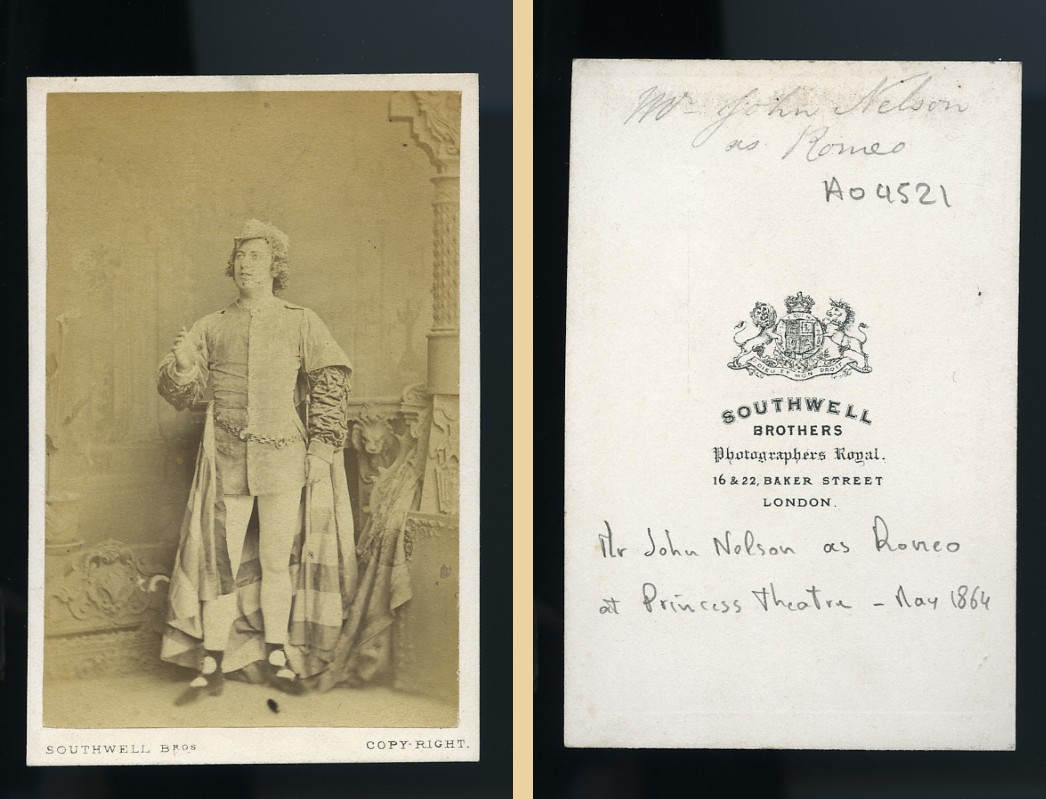 SOUTHWELL BROS
COPY-RIGHT.
Mr John Nelson
as Romeo
A04521
DIEU ET MON DROIT
SOUTHWELL
BROTHERS
Photographers Royal.
16 & 22, BAKER STREET
LONDON.
Mr John Nelson as Romeo
at Princess Theatre - May 1864